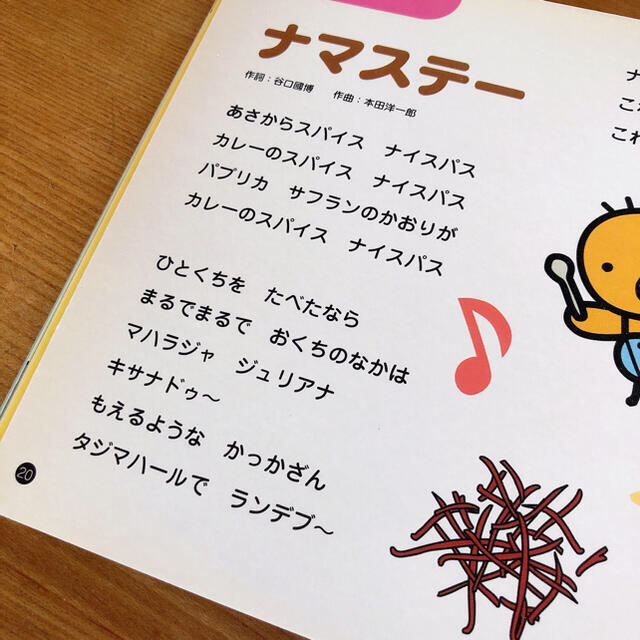 ナマステー
作詞：谷口國博　作曲：本田洋一郎
あさからスパイス　ナイスパス
カレーのスパイス　ナイスパス
パプリカ　サフランのかおりが
カレーのスパイス　ナイスパス
ひとくちを　たべたなら
まるでまるで　おくちのなかは
マハラジャ　ジュリアナ
キサナドゥ〜
もえるような　かっかざん
タジマハールで　ランデブ〜
20
ナ
これ